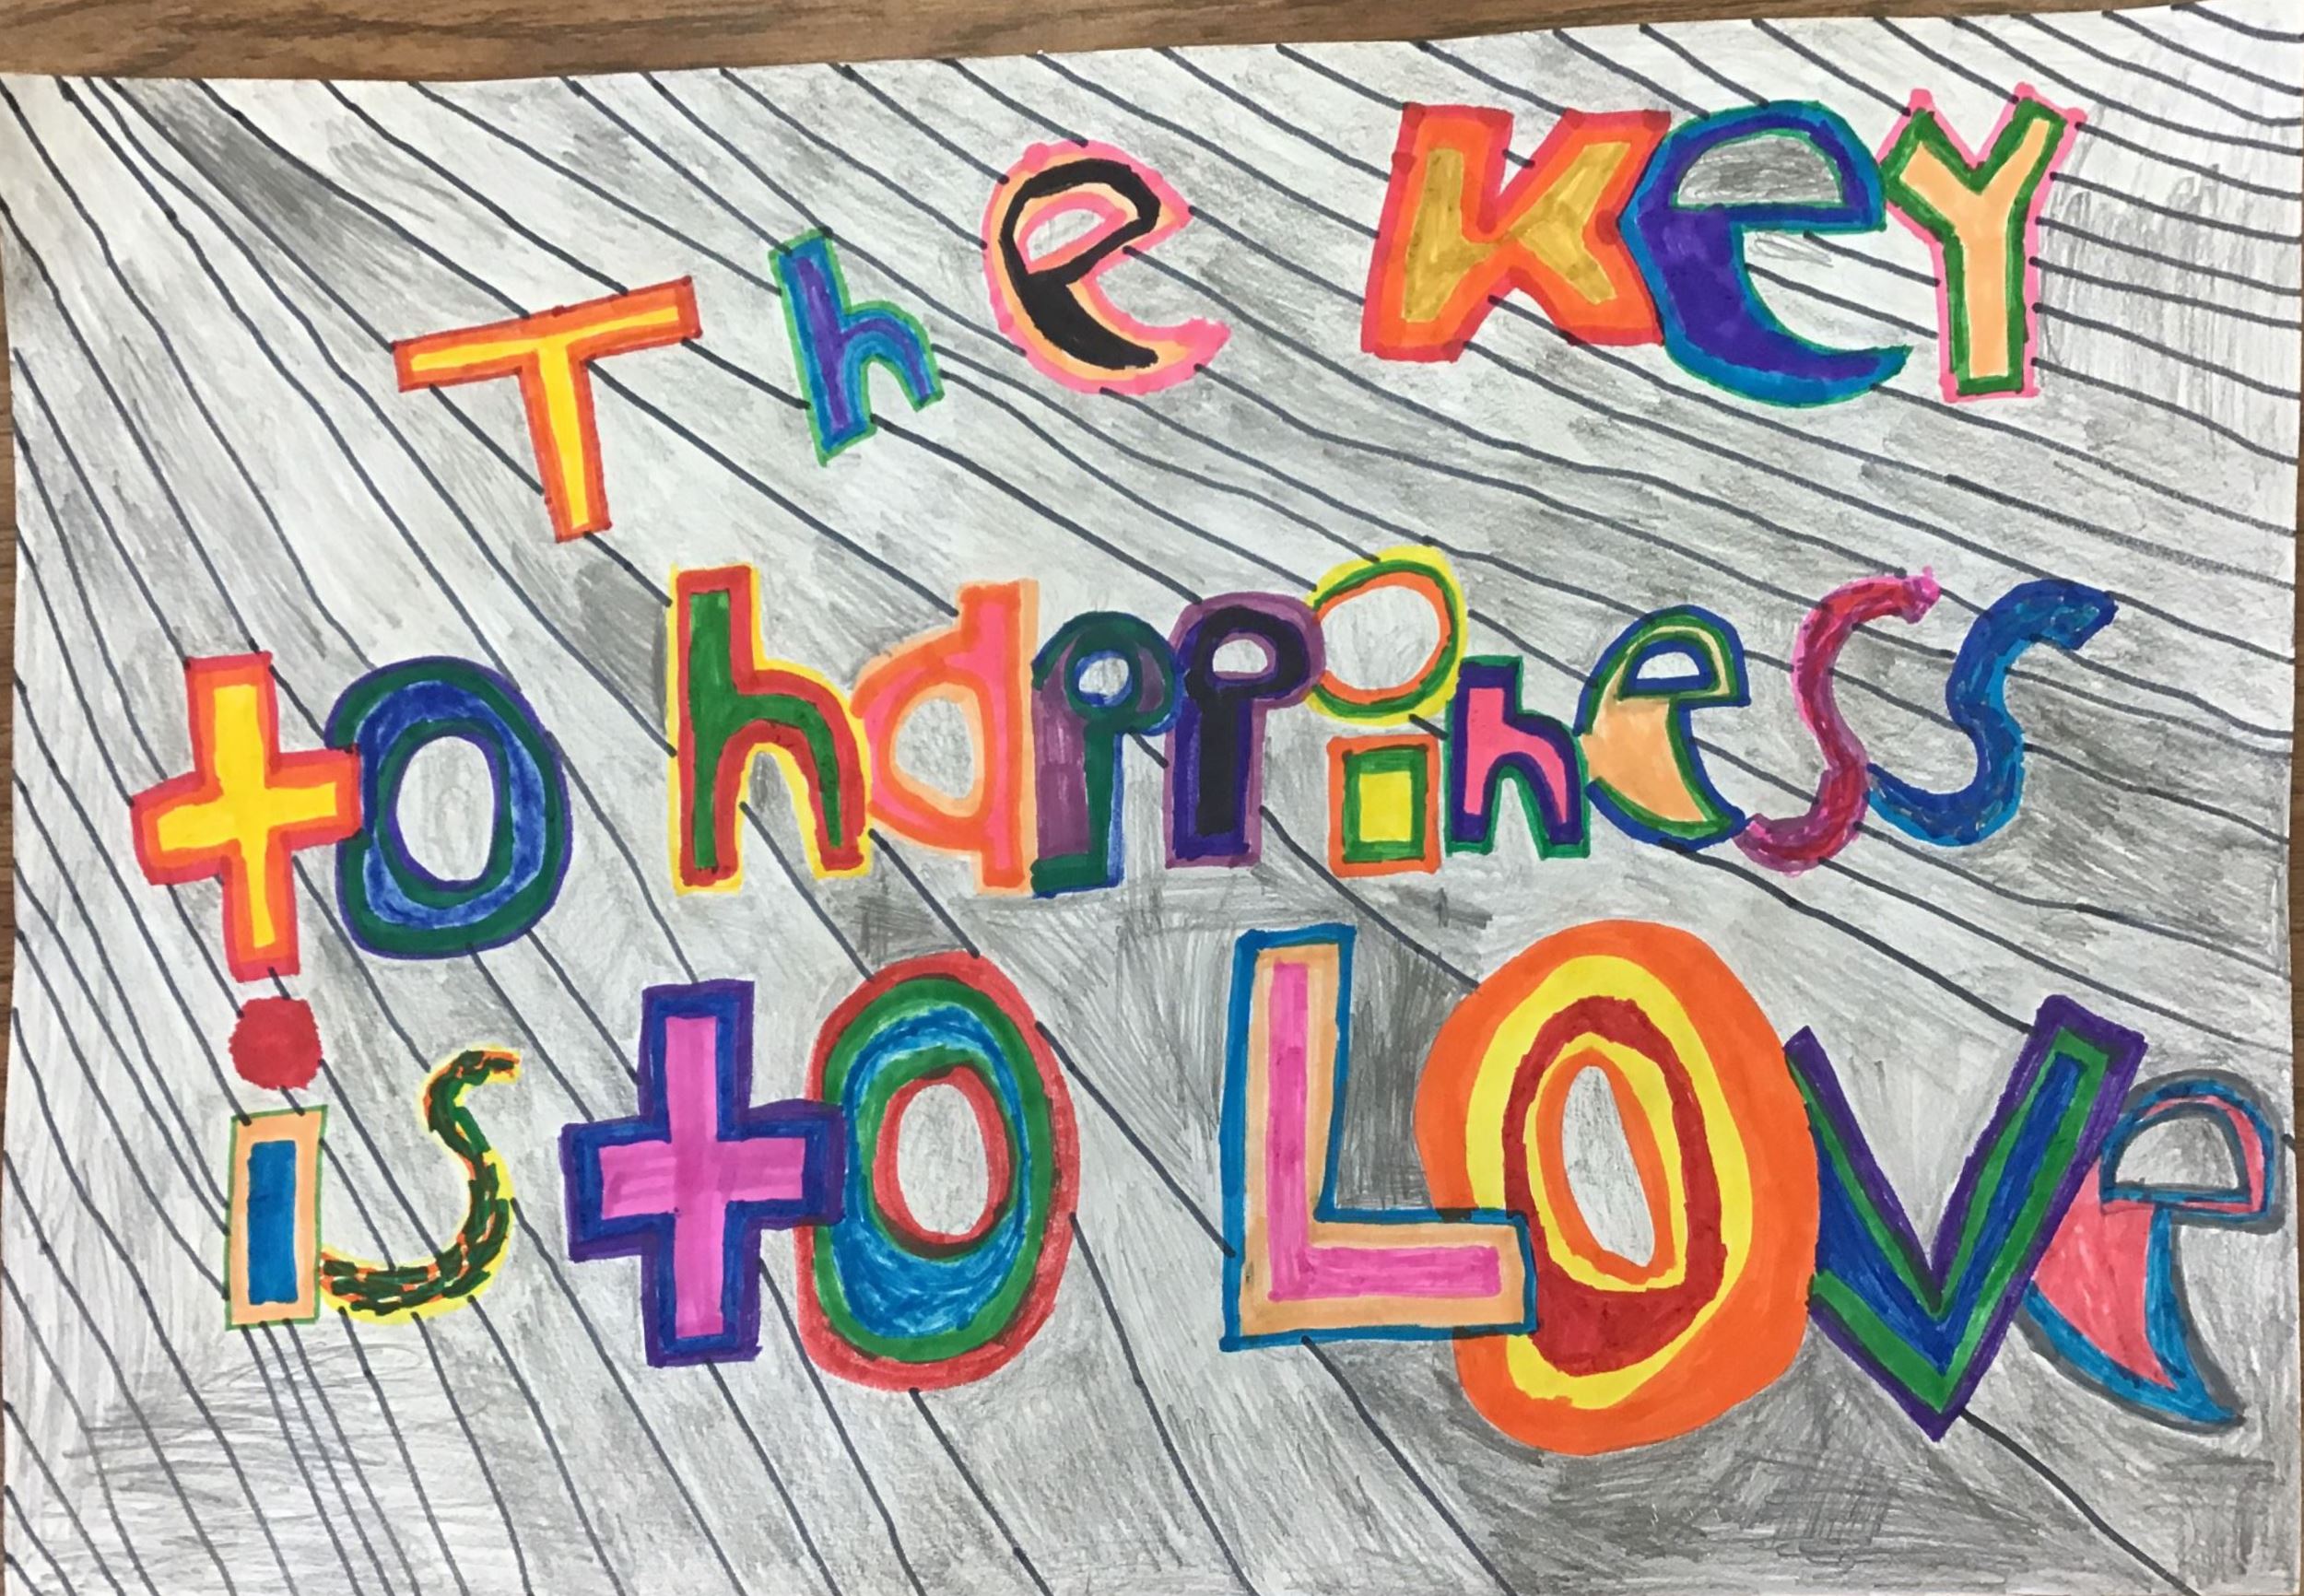 The KeY
to happiness
is to LOVe